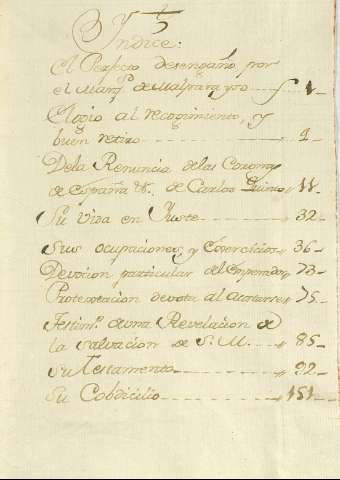 Yndice:
El Perfecto desengaño por
el Marq.s de Malpara yso f 1
Elogio al recogimiento, y
buen retiro 9
Dela Renuncia delas Coronas
de España &. de Carlos Quinto 11
Su Vida en Yuste 32
Sus ocupaciones y Exercicios 36
Devocion particular del Emperador 73
Protestacion devota al acostarse 75
Testim.o de una Revelacion de
la salvacion de S. M. 85
Su Testamento 92
Su Cobdicilio 151